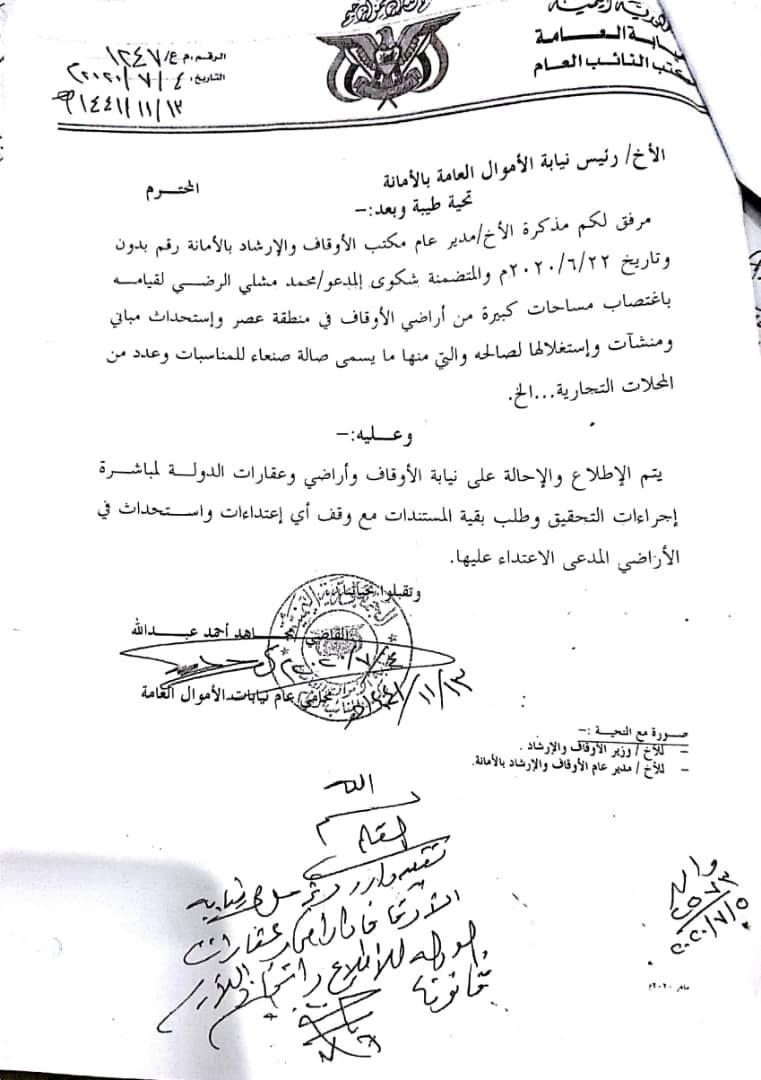 النيابة العامة
مكتب النائب العام
الرقم: م ع/ ١٢٤٧
التاريخ: ٤/٧/٢٠٢٠م
١٣/١١/١٤٤١هـ
الأخ/ رئيس نيابة الأموال العامة بالأمانة
المحترم
تحية طيبة وبعد:-
مرفق لكم مذكرة الأخ/مدير عام مكتب الأوقاف والإرشاد بالأمانة رقم بدون
وتاريخ ٢٠٢٠/٦/٢٢م والمتضمنة شكوى المدعو/محمد مشلي الرضي لقيامه
باغتصاب مساحات كبيرة من أراضي الأوقاف في منطقة عصر وإستحداث مباني
ومنشآت وإستغلالها لصالحه والتي منها ما يسمى صالة صنعاء للمناسبات وعدد من
المحلات التجارية...الخ.
وعليه:-
يتم الإطلاع والإحالة على نيابة الأوقاف وأراضي وعقارات الدولة لمباشرة
إجراءات التحقيق وطلب بقية المستندات مع وقف أي إعتداءات واستحداث في
الأراضي المدعى الاعتداء عليها.
وتقبلوا تحياتنا
القاضي/ أحمد عبدالله
محامي عام نيابات الأموال العامة
صورة مع التحية :-
- للأخ / وزير الأوقاف والإرشاد .
- للأخ / مدير عام الأوقاف والإرشاد بالأمانة.
الأوقاف وأراضي وعقارات
الدولة للاطلاع واتخاذ اللازم
قانونا
وارد
٢٥٧٣
٢٠٢٠/٧/٥